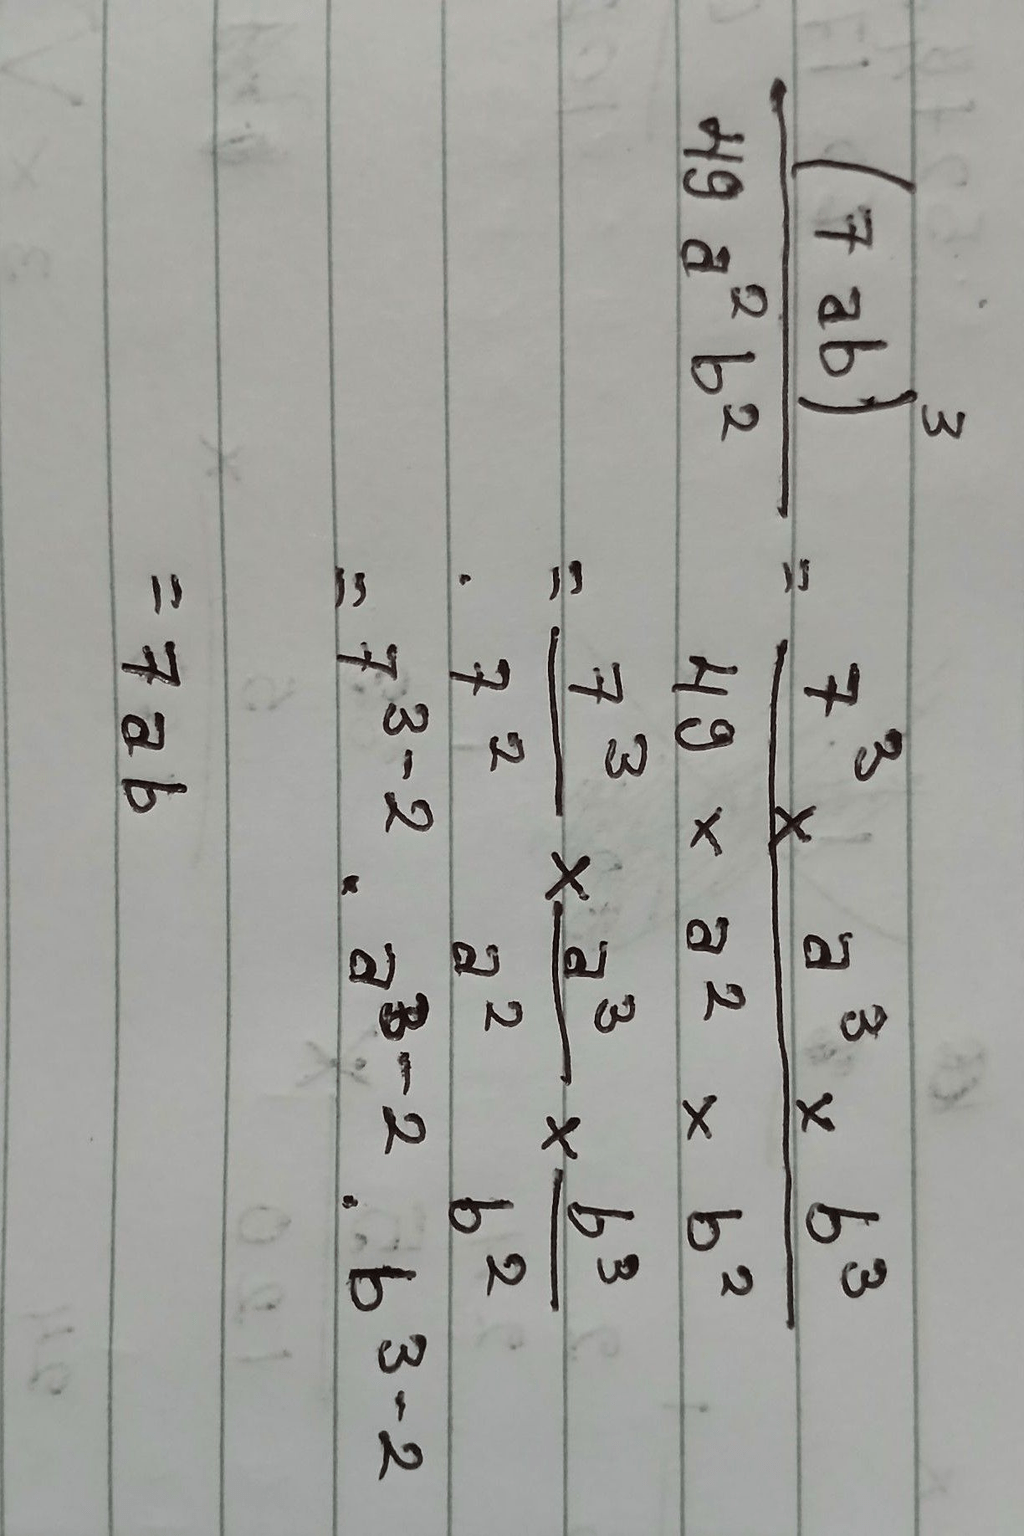 (7ab)³/49a²b² = 7³ × a³ × b³/49 × a² × b²
= 7³/7² × a³/a² × b³/b²
= 7³⁻² . a³⁻² . b³⁻²
= 7ab